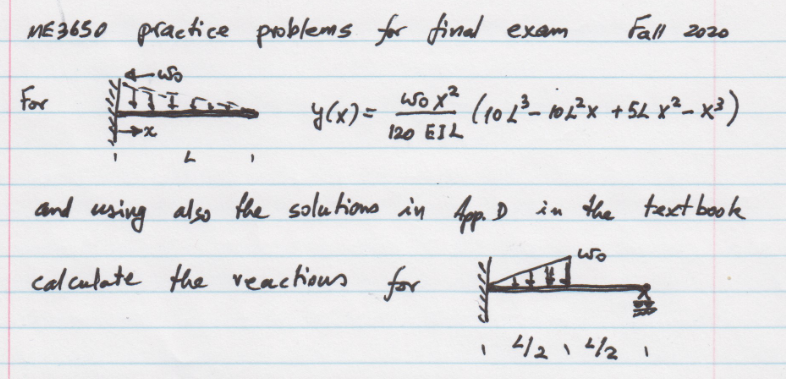 ME3650 practice problems for final exam Fall 2020
w₀
For y(x) = w₀x² / 120 EIL (10L³ - 10L²x + 5Lx² - x³)
x
L
and using also the solutions in App. D in the textbook
w₀
calculate the reactions for
L/2 L/2